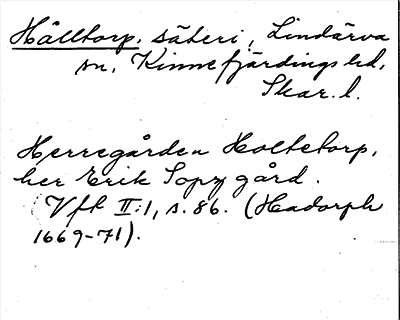 Hålltorp, säteri, Lindärva
sn, Kinnefjärdings hd,
Skar. l.
Herregården Holtetorp,
her Erik Sopz gård.
Vft II:1, s. 86. (Hadorph
1669-71).